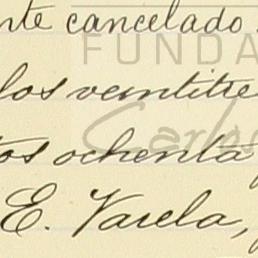 nte cancelado.
FUNDA
los veintitre
Carlos
tos ochenta y
E. Varela,